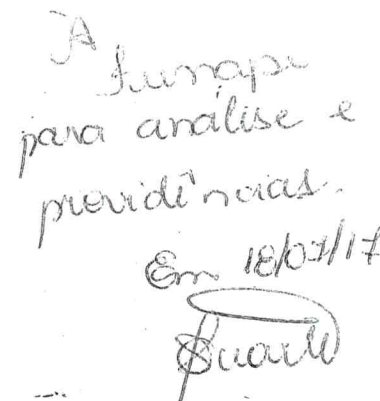 À
Funapi
para análise e
providências.
Em 18/07/17